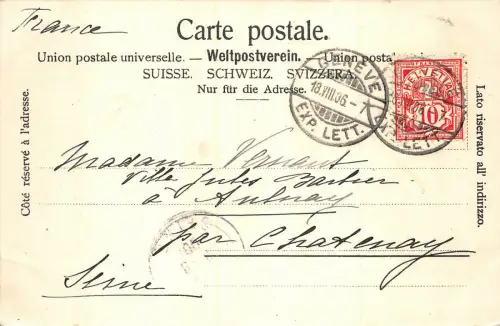 France
Carte postale.
Union postale universelle. – Weltpostverein. – Union posta
SUISSE. SCHWEIZ. SVIZZERA.
Nur für die Adresse.
Côté réservé à l'adresse.
Lato riservato all' indirizzo.
GENÈVE
EXP. LETT.
HELVETIA
10
EXP. LETT.
Madame
Ville Jules Barbier
à Aulnay
par Chatenay
Seine